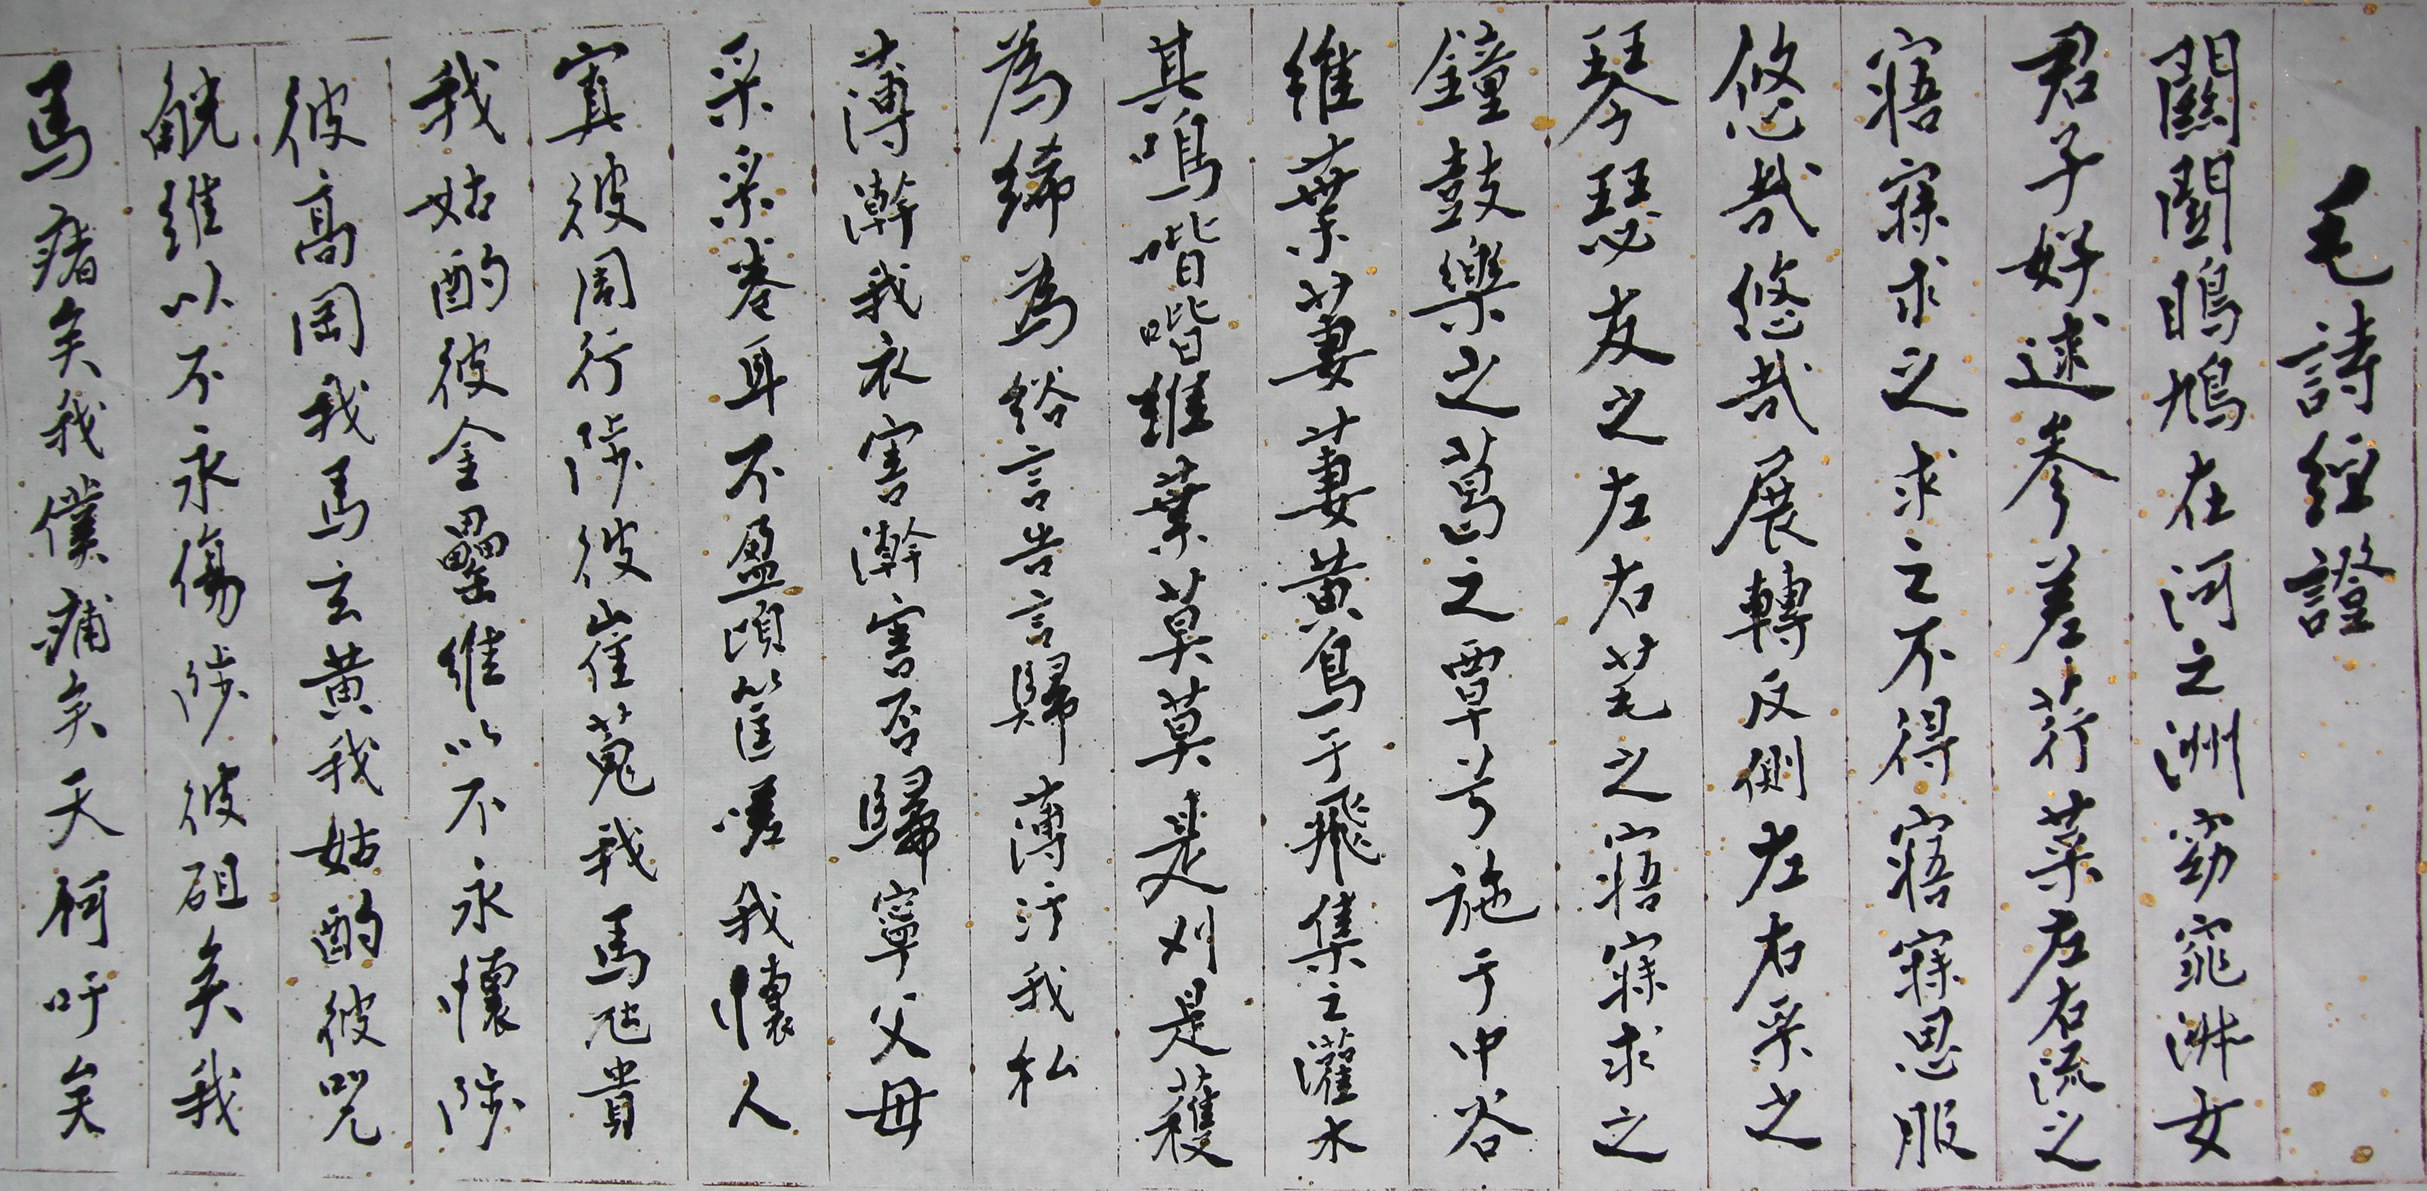 毛詩經證
關關鴡鳩在河之洲窈窕淑女
君子好逑參差荇菜左右流之
寤寐求之求之不得寤寐思服
悠哉悠哉展轉反側左右采之
琴瑟友之左右芼之寤寐求之
鐘鼓樂之葛之覃兮施于中谷
維葉萋萋黃鳥于飛集之灌木
其鳴喈喈維葉莫莫是刈是穫
為絺為綌言告言歸薄汙我私
薄澣我衣害澣害否歸寧父母
采采卷耳不盈頃筐嗟我懷人
寘彼周行陟彼崔蒐我馬虺貴
我姑酌彼金罍維以不永懷陟
彼高岡我馬玄黃我姑酌彼兕
觥維以不永傷陟彼砠矣我
馬瘏矣我僕痡矣天何吁矣